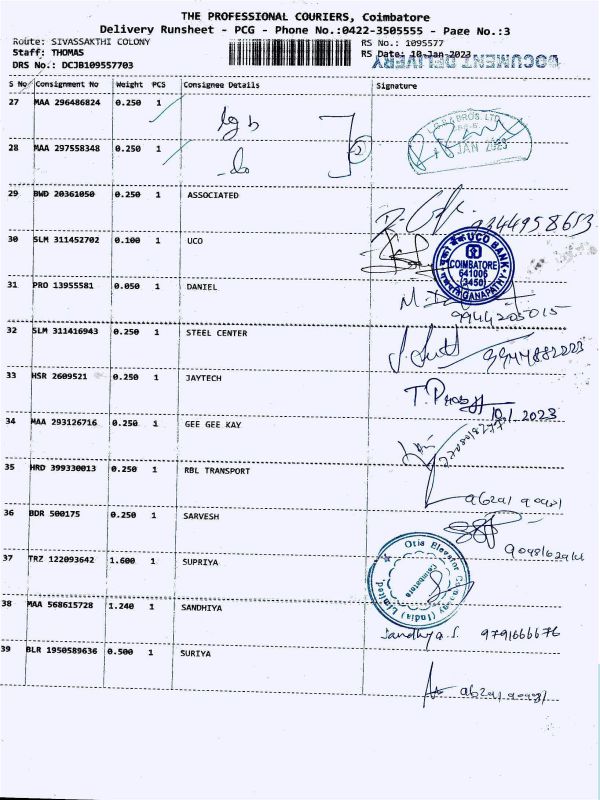 THE PROFESSIONAL COURIERS, Coimbatore
Delivery Runsheet - PCG - Phone No.:0422-3505555 - Page No.:3
Route: SIVASSAKTHI COLONY RS No.: 1095577
Staff: THOMAS RS Date: 10-Jan-2023
DOCUMENT DELIVERY
DRS No.: DCJB109557703
S No Consignment No Weight PCS Consignee Details Signature
27 MAA 296486824 0.250 1
28 MAA 297558348 0.250 1
& BROS. LTD.
JAN 2023
29 BWD 20361050 0.250 1 ASSOCIATED
9344958653
30 SLM 311452702 0.100 1 UCO
UCO BANK
COIMBATORE
641006
(3450)
GANAPATHY
31 PRO 13955581 0.050 1 DANIEL
9944205015
32 SLM 311416943 0.250 1 STEEL CENTER
33 HSR 2609521 0.250 1 JAYTECH
10.1.2023
34 MAA 293126716 0.250 1 GEE GEE KAY
35 HRD 399330013 0.250 1 RBL TRANSPORT
36 BDR 500175 0.250 1 SARVESH
37 TRZ 122093642 1.600 1 SUPRIYA
Otis Elevator Company (India) Limited
Coimbatore
38 MAA 568615728 1.240 1 SANDHIYA
Sandhya.S. 9791666676
39 BLR 1950589636 0.500 1 SURIYA